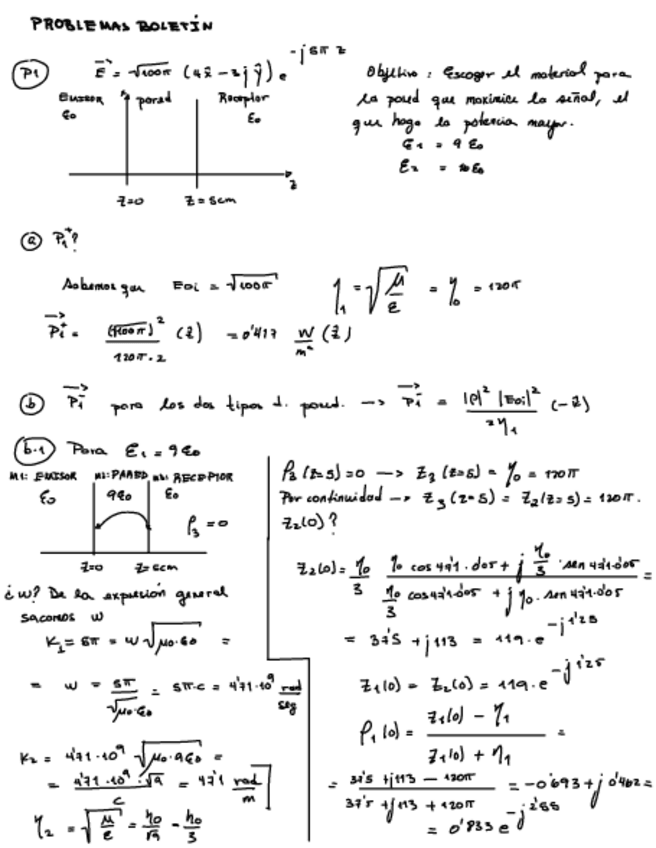 PROBLEMAS BOLETÍN
P1 E = √100π (4x̂ - 3j ŷ) e^-j5π z
Objetivo: Escoger el material para
la pared que maximice la señal, el
que haga la potencia mayor.
ε1 = 9 ε0
ε2 = 10 ε0
EMISOR pared Receptor
ε0 ε0
z
z=0 z=5cm
a P1+?
Sabemos que E0i = √100π η1 = √μ/ε = η0 = 120π
Pi+ = (√100π)² / 120π·2 (ẑ) = 0'417 W/m² (ẑ)
b Pi- para los dos tipos d. pared. → Pi- = |ρ|² |E0i|² / 2η1 (-ẑ)
b.1 Para ε1 = 9ε0
M1: EMISOR M2: PARED M3: RECEPTOR
ε0 9ε0 ε0
ρ3 = 0
z=0 z=5cm
¿w? De la expresión general
sacamos w
K1 = 5π = w √μ0·ε0 =
= w = 5π / √μ0·ε0 = 5π·c = 4'71·10⁹ rad/seg
K2 = 4'71·10⁹ √μ0·9ε0 =
= 4'71·10⁹·√9 / c = 47'1 rad/m
η2 = √μ/ε = η0/√9 = η0/3
ρ3 (z=5) = 0 → Z3 (z=5) = η0 = 120π
Por continuidad → Z3 (z=5) = Z2(z=5) = 120π.
Z2(0)?
Z2(0) = η0/3 · (η0 cos 47'1·0'05 + j η0/3 · sen 47'1·0'05) / (η0/3 cos 47'1·0'05 + j η0 · sen 47'1·0'05) =
= 37'5 + j113 = 119·e^-j1'25
Z1(0) = Z2(0) = 119·e^-j1'25
ρ1(0) = (Z1(0) - η1) / (Z1(0) + η1) =
= (37'5 + j113 - 120π) / (37'5 + j113 + 120π) = -0'693 + j0'462 =
= 0'833 e^-j2'55